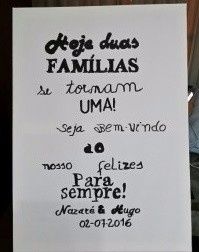 Hoje duas
FAMÍLIAS
se tornam
UMA!
Seja Bem-vindo
ao
nosso felizes
Para
sempre!
Nazaré & Hugo
02-07-2016